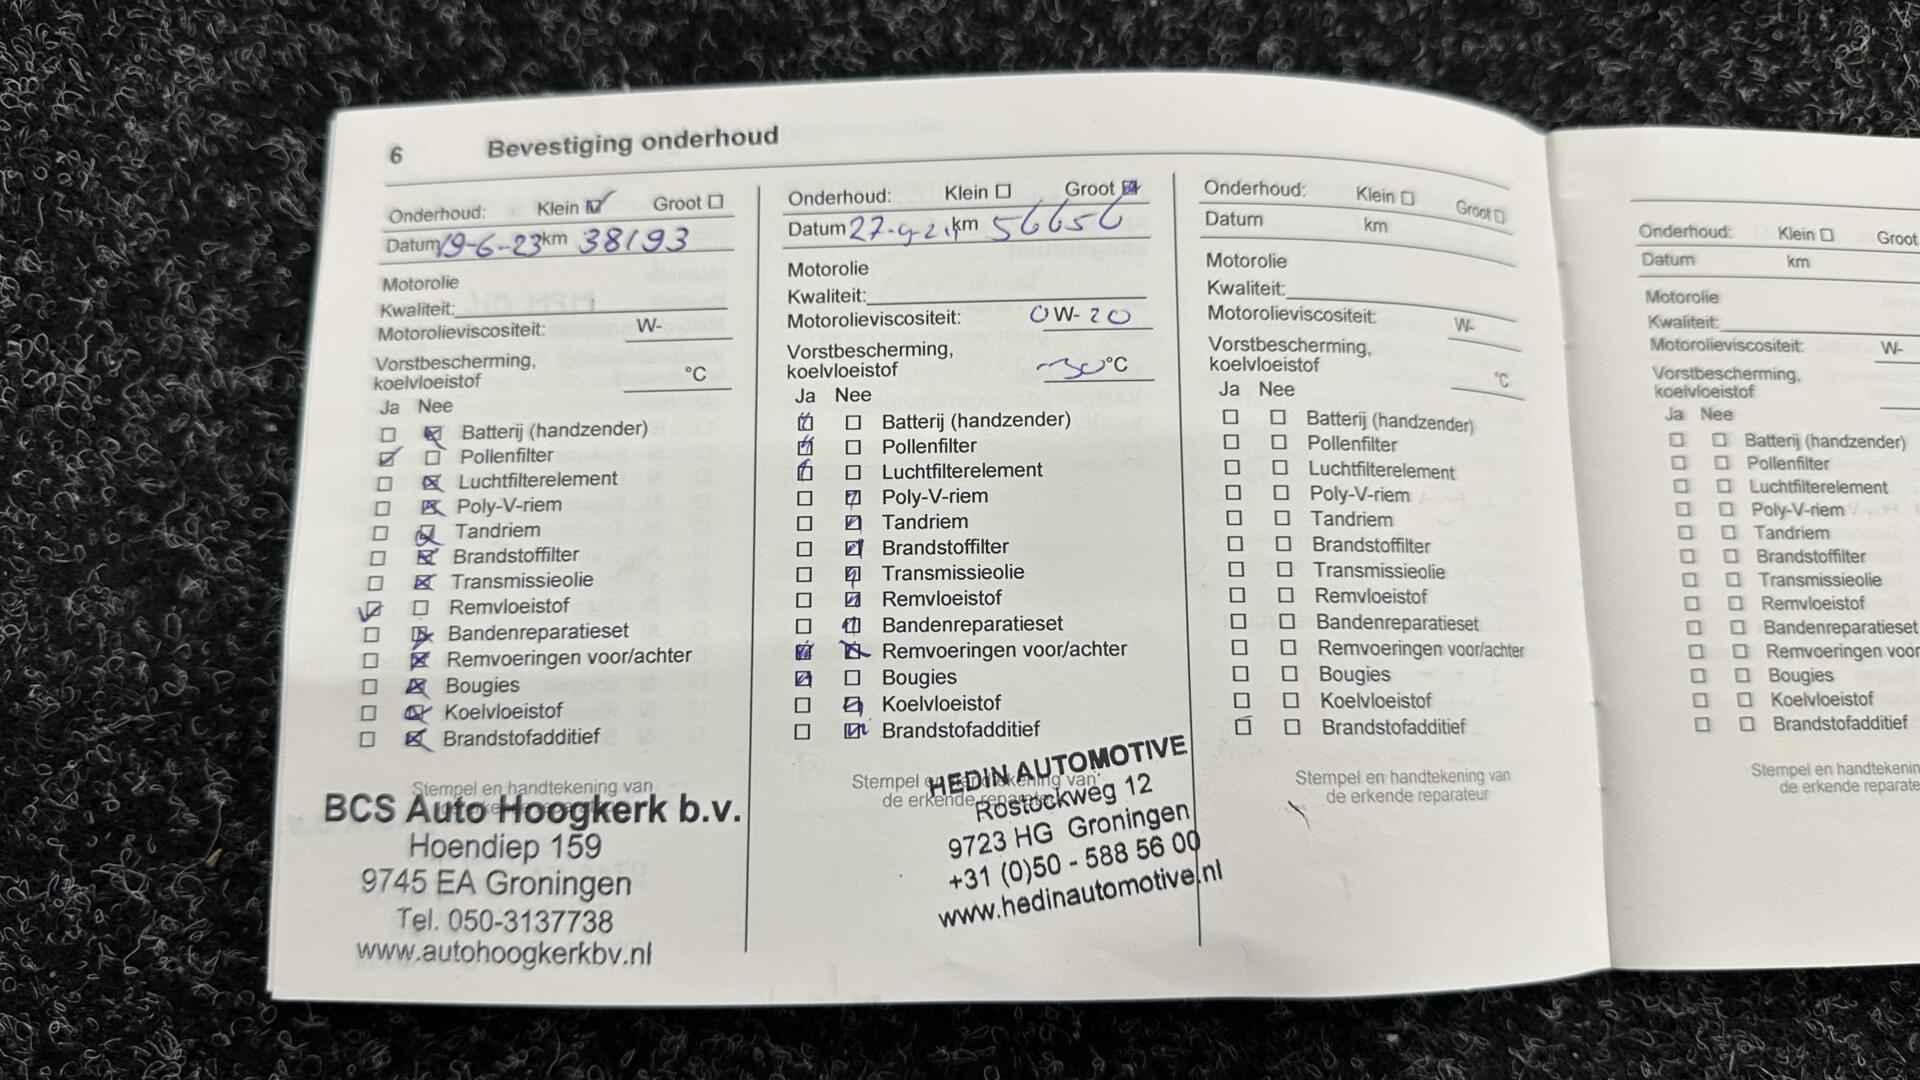 6 Bevestiging onderhoud
Onderhoud: Klein Groot
Datum 19-6-23 km 38193
Motorolie
Kwaliteit:
Motorolieviscositeit: W-
Vorstbescherming,
koelvloeistof °C
Ja Nee
Batterij (handzender)
Pollenfilter
Luchtfilterelement
Poly-V-riem
Tandriem
Brandstoffilter
Transmissieolie
Remvloeistof
Bandenreparatieset
Remvoeringen voor/achter
Bougies
Koelvloeistof
Brandstofadditief
Stempel en handtekening van
BCS Auto Hoogkerk b.v.
Hoendiep 159
9745 EA Groningen
Tel. 050-3137738
www.autohoogkerkbv.nl
Onderhoud: Klein Groot
Datum 27-9-24 km 56656
Motorolie
Kwaliteit:
Motorolieviscositeit: 0W-20
Vorstbescherming,
koelvloeistof -30°C
Ja Nee
Batterij (handzender)
Pollenfilter
Luchtfilterelement
Poly-V-riem
Tandriem
Brandstoffilter
Transmissieolie
Remvloeistof
Bandenreparatieset
Remvoeringen voor/achter
Bougies
Koelvloeistof
Brandstofadditief
Stempel en handtekening van
de erkende reparateur
HEDIN AUTOMOTIVE
Rostockweg 12
9723 HG Groningen
+31 (0)50 - 588 56 00
www.hedinautomotive.nl
Onderhoud: Klein Groot
Datum km
Motorolie
Kwaliteit:
Motorolieviscositeit: W-
Vorstbescherming,
koelvloeistof °C
Ja Nee
Batterij (handzender)
Pollenfilter
Luchtfilterelement
Poly-V-riem
Tandriem
Brandstoffilter
Transmissieolie
Remvloeistof
Bandenreparatieset
Remvoeringen voor/achter
Bougies
Koelvloeistof
Brandstofadditief
Stempel en handtekening van
de erkende reparateur
Onderhoud: Klein Groot
Datum km
Motorolie
Kwaliteit:
Motorolieviscositeit: W-
Vorstbescherming,
koelvloeistof
Ja Nee
Batterij (handzender)
Pollenfilter
Luchtfilterelement
Poly-V-riem
Tandriem
Brandstoffilter
Transmissieolie
Remvloeistof
Bandenreparatieset
Remvoeringen voor
Bougies
Koelvloeistof
Brandstofadditief
Stempel en handtekenin
de erkende reparate